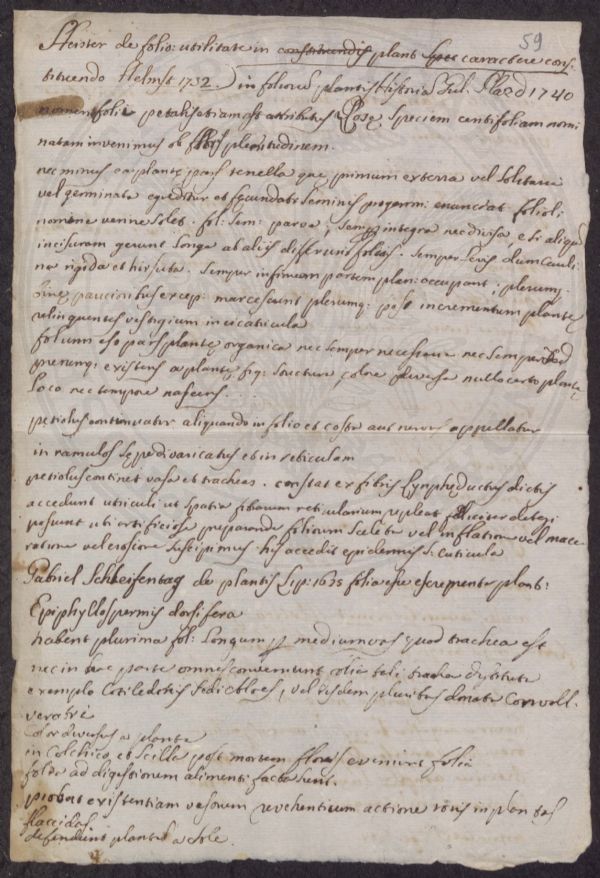 59
Heister de folio: utilitate in constituendis plant spec caractere cons
tituendo Helmst 1732. in folioru plantis Historia Jul. 1740
nomen folii petalis etiam est attributu Rosę speciem centifoliam nomi
natam invenimus ob plenitudinem.
nec minus ea plantę pars tenella que primum ex terra vel solitaria
vel geminata egreditur et fęcundati seminis progerm: enunciat folioli
nomine venire solet. fol: sem: parva, semp integra nec divisa, e si aliqua
incisuram gerunt longe ab aliis differunt foliis. semper levis dum cauli
na rigida et hirsuta. semper infimam partem plan: occupant; plerumq.
paucioribus excep: marcescunt plerumq: post incrementum plantę
relinquentes vestigium in cicatricula
folium pars plantę organica nec semper necessaria nec semper sed
plerumq: existens a plantę fig: structura colore diversa nullo certo plantę
loco nec tempore nascens.
petiolus continuatur aliquando in folio et costa aut nervus appellatur
in ramulos sępe divaricatus et in reticulam
petiolus continet vasa et tracheas. constat ex fibris lymphęductus dictis
accedunt utriculi ut spatia fibrarum reticularium repleat feliciter detegi
possunt ubi artificiose preparando foliorum sceleta vel inflatione vel mace
ratione vel erosione suscipimus his accedit epidermis s. cuticula
Gabriel Schleifentag de plantis Lip: 1635 folia esse excrementa plant:
Epiphyllospermis dorsifera
habent plurima fol: longum per medium quod trachea est
nec in hac parte omnes conveniunt alia tali trachea destituta
exemplo Cotiledonis sedi aloes, vel iisdem pluribus donata Convall.
veratri
Color diversus a planta
in Colchico et Scilla post mortem floris eveniunt folia
folia ad digestionem alimenti facta sunt.
probat existentiam vasorum revehentium actione roris in plantas
flaccidas
defendunt plantas a sole.